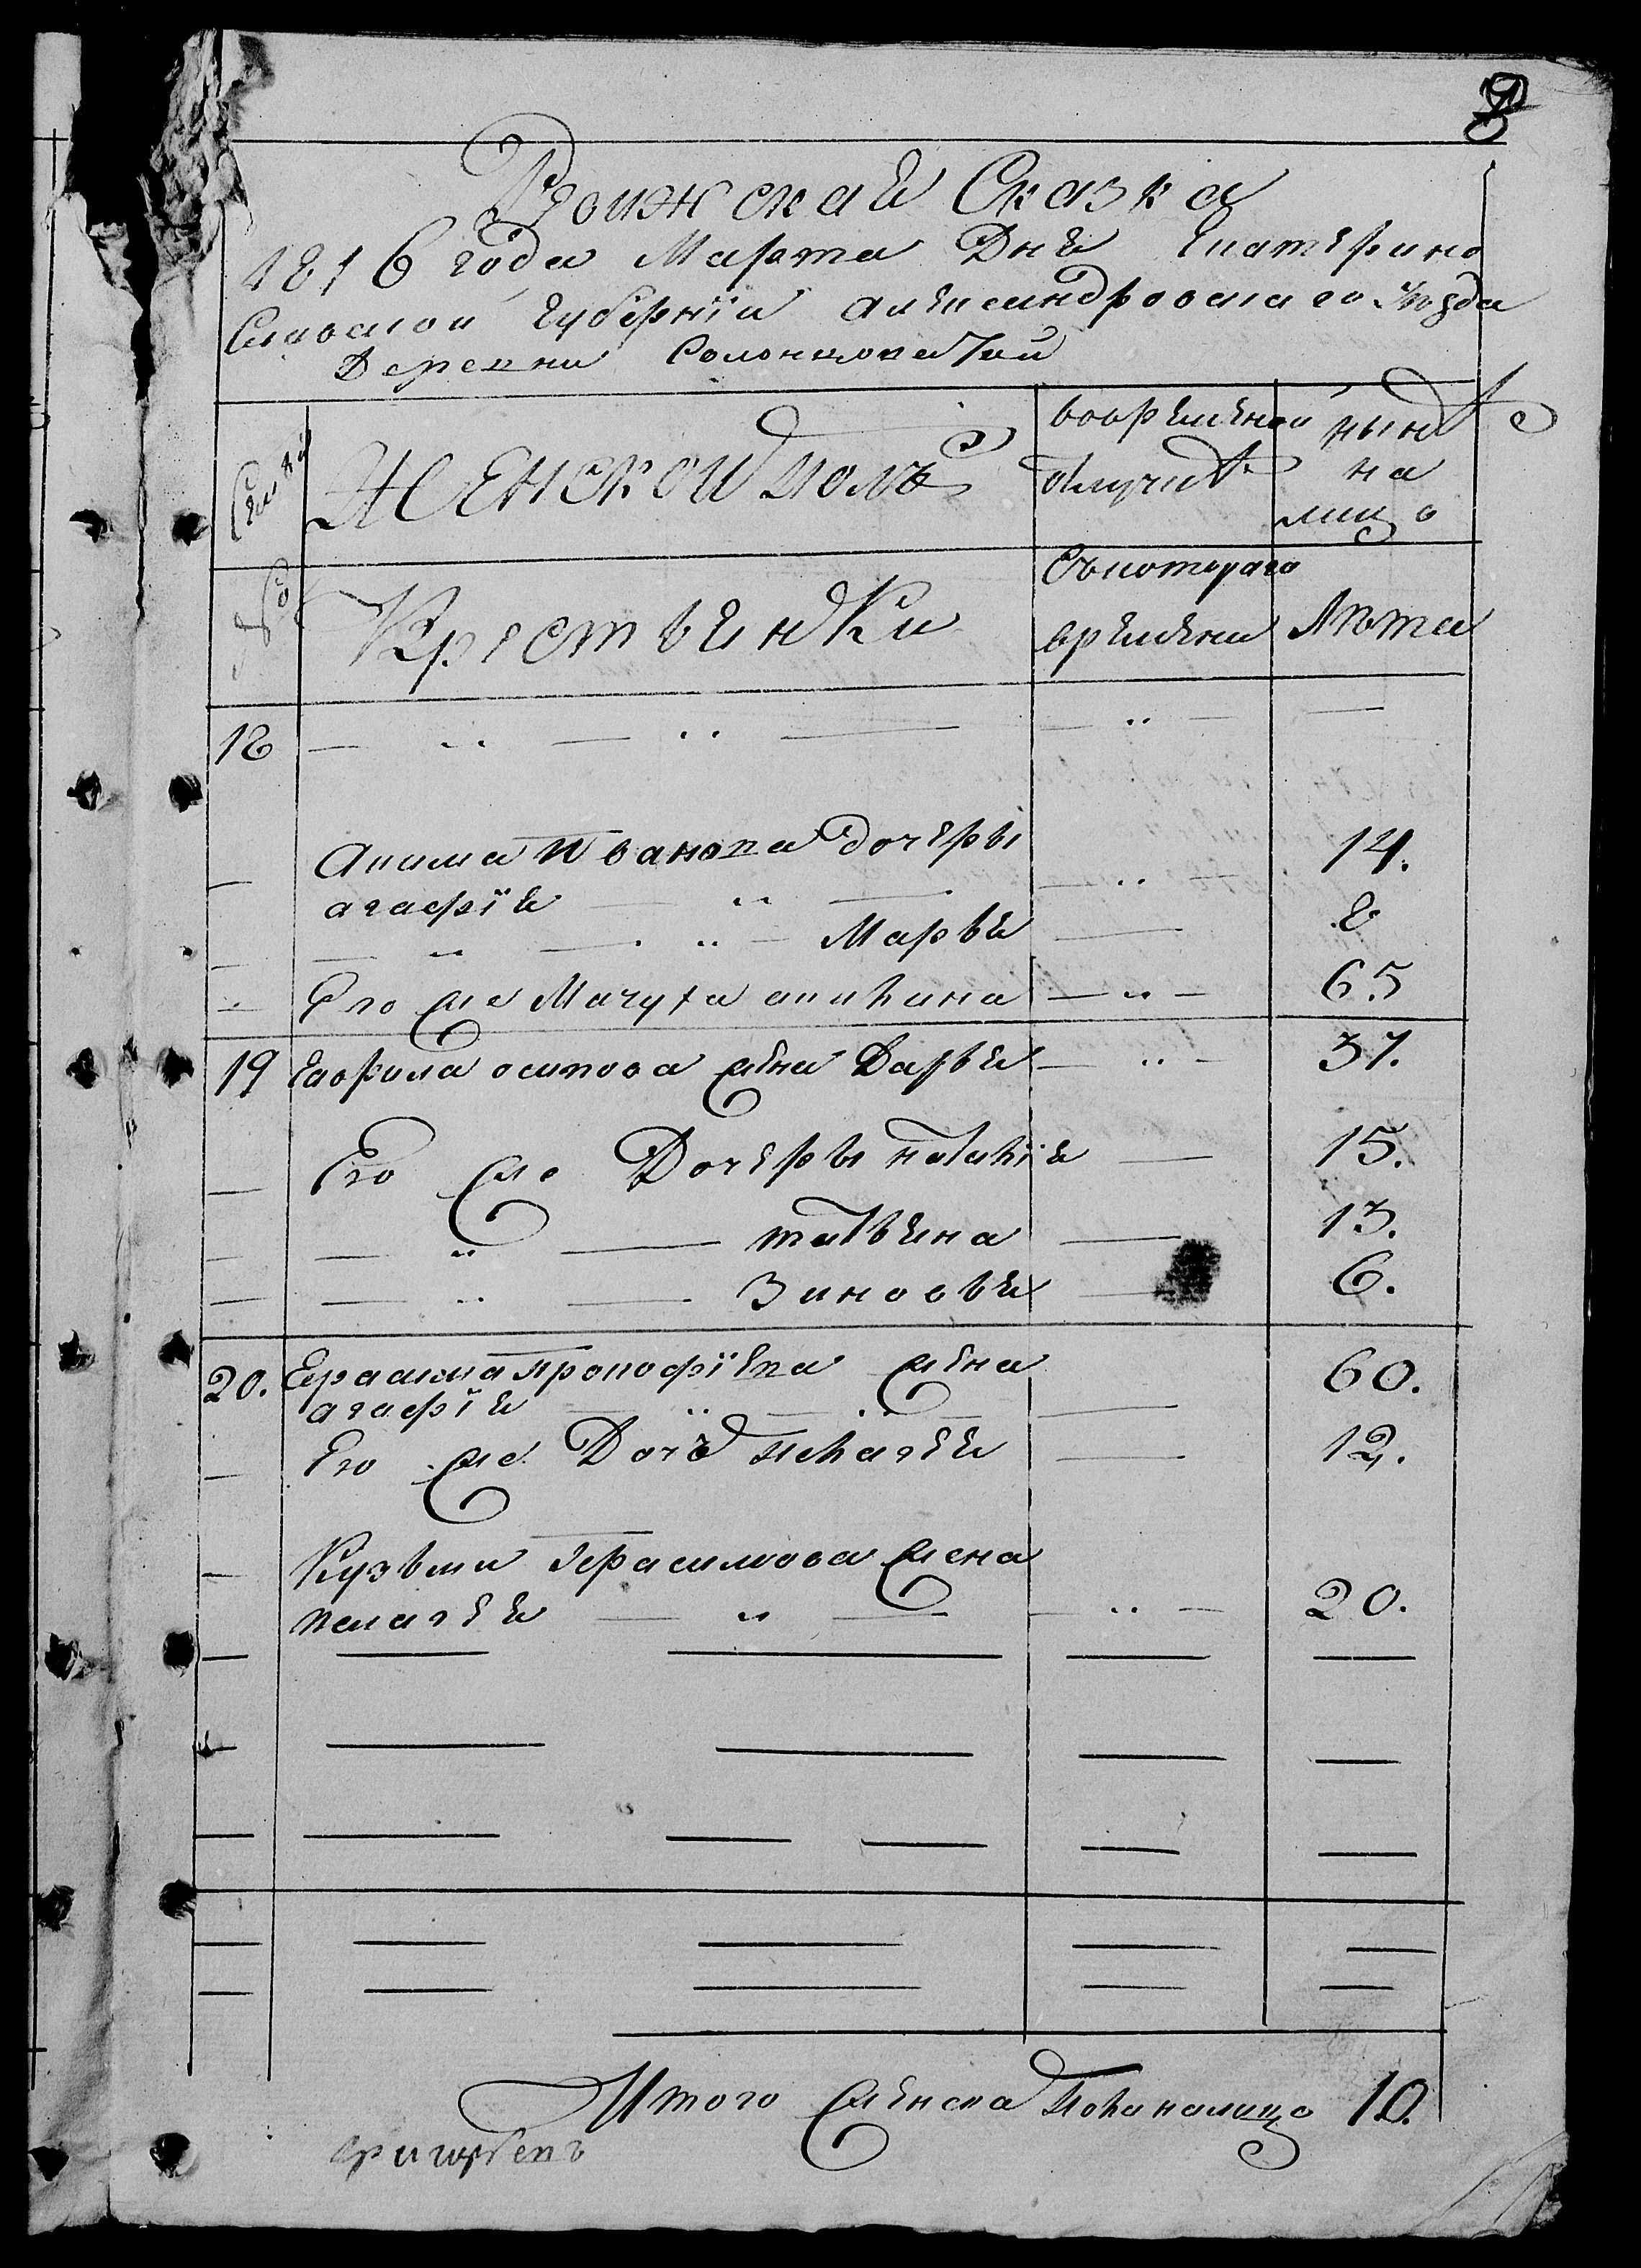 8
Ревижская Сказка
1816 года Марта Дня Екатерино
Славской губернїи александровскаго уѣзда
Деревни Солонцоватай
Семьи
Женской полъ
вовременной
отлучкѣ
нынѣ
на
лицо
№
Крестьянки
Съ котораго
времени
Лѣта
18
акима Иванова дочеры
агафїя 14.
Марья 8
Его же Мачуха акилина 65
19 гаврила осипова жена Дарья 37.
Его же Дочеры наталїя 15.
татьяна 13.
Зиновья 6.
20. Ерасима прокофїева жена
агафїя 60.
Его же Дочь пелагея 12.
Кузьми Герасимова жена
пелагея 20.
Итого женска пола налицо 10.